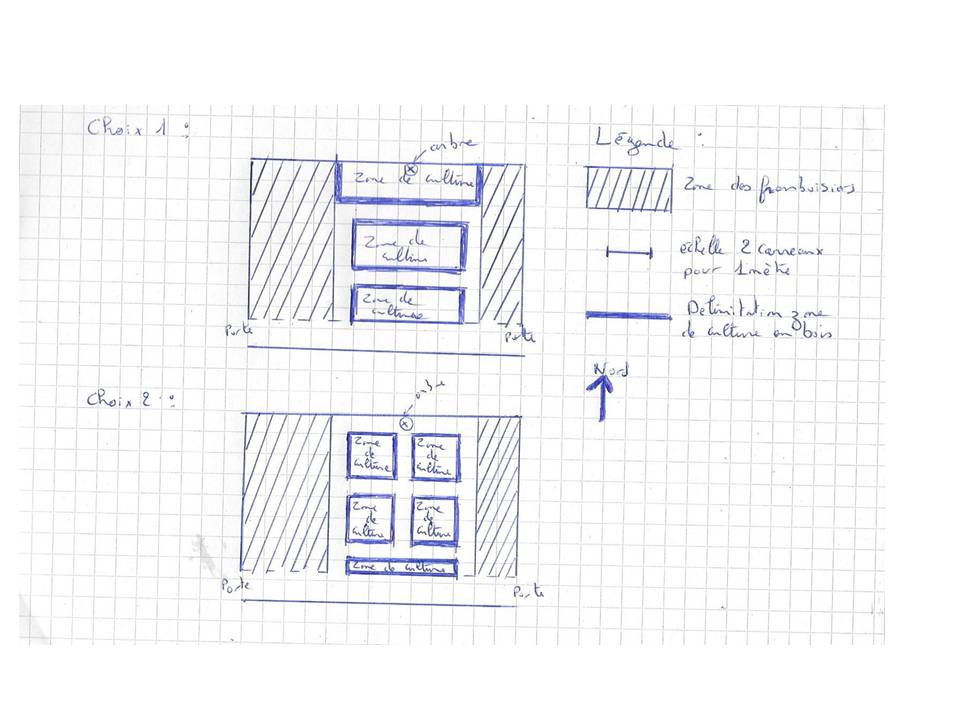 Choix 1 :
arbre
Zone de culture
Zone de
culture
Zone de
cultures
Porte
Porte
Légende :
Zone des framboisiers
échelle 2 carreaux
pour 1 mètre
Délimitation zone
de culture en bois
Nord
Choix 2 :
arbre
Zone
de
culture
Zone
de
culture
Zone
de
culture
Zone
de
culture
Zone de culture
Porte
Porte